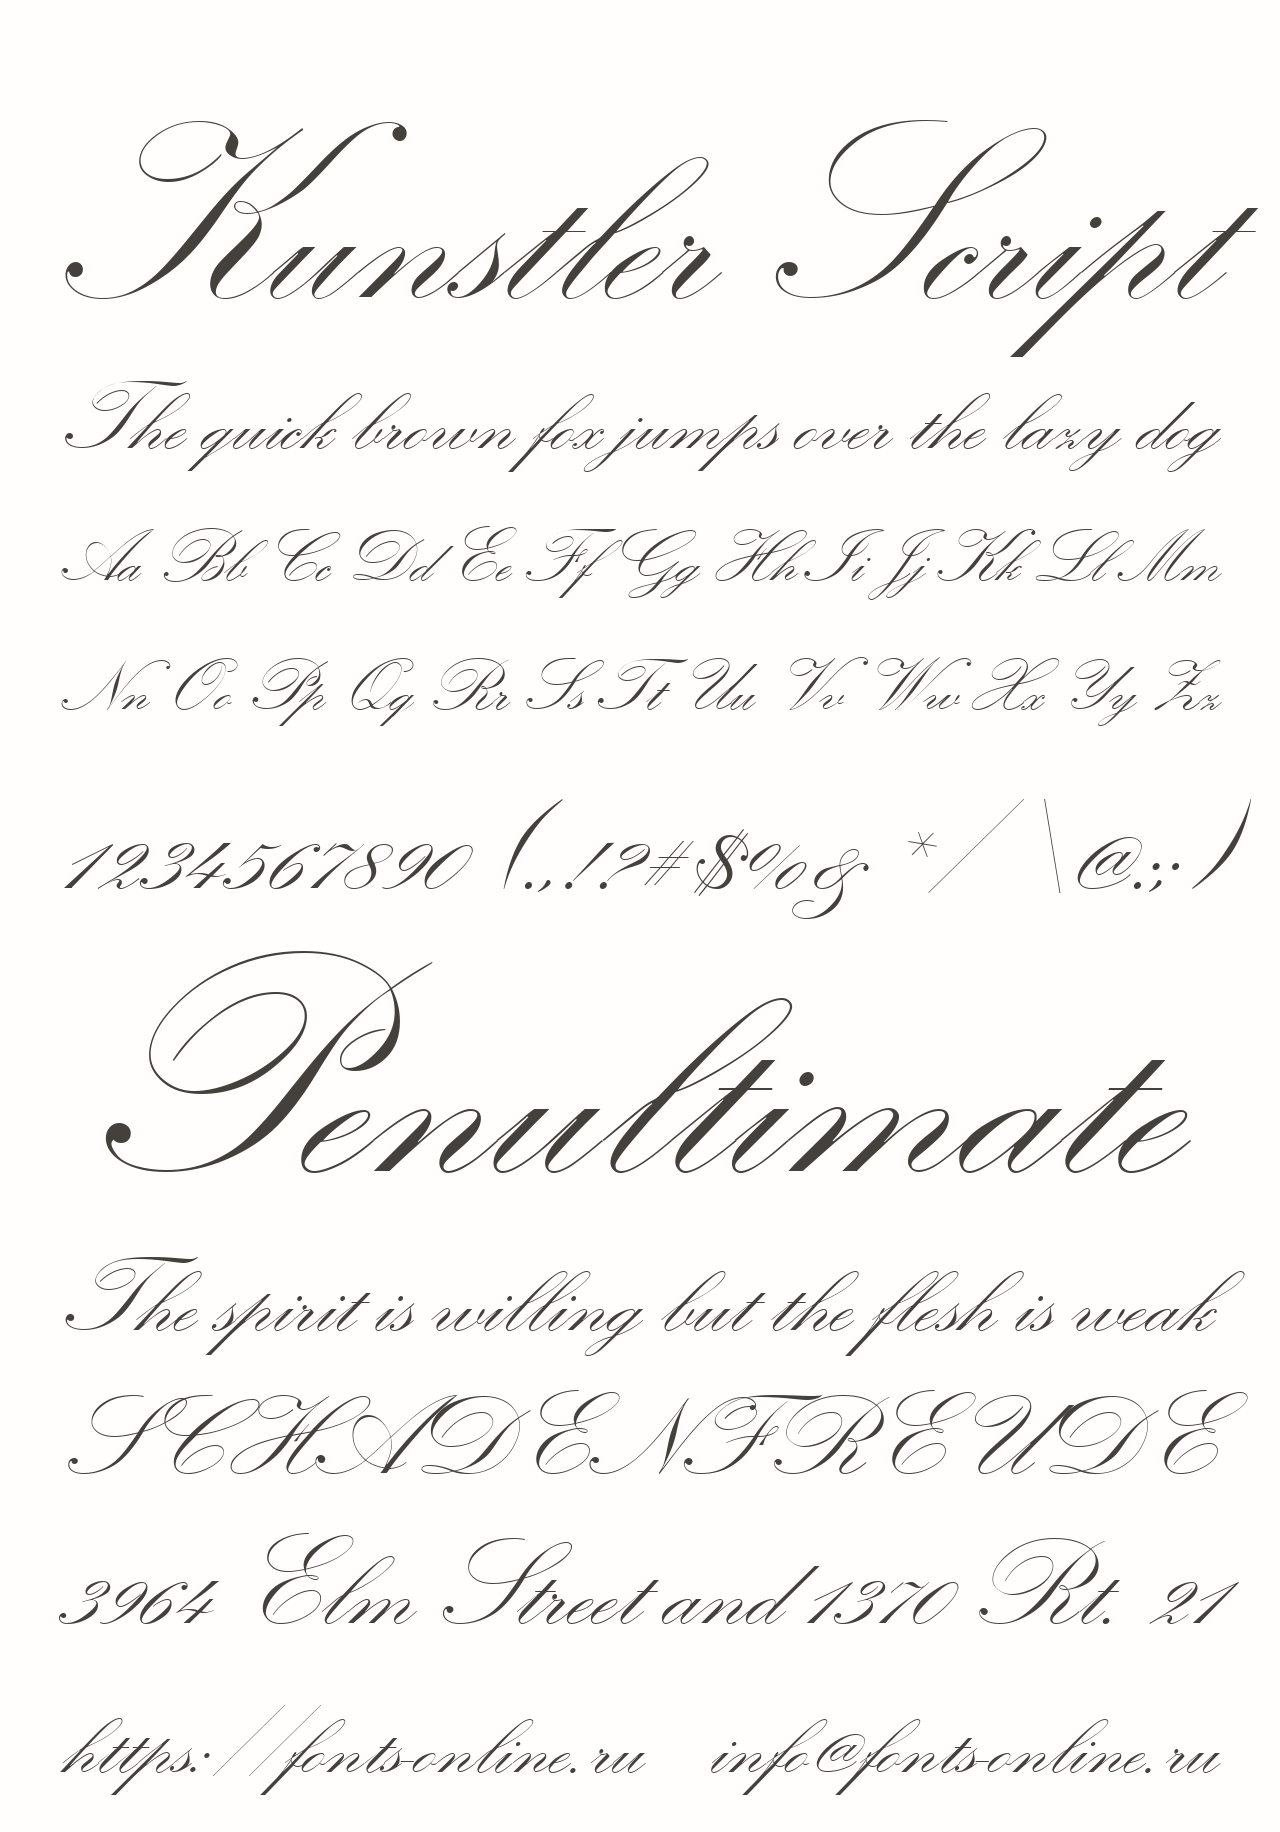 Kunstler Script
The quick brown fox jumps over the lazy dog
Aa Bb Cc Dd Ee Ff Gg Hh Ii Jj Kk Ll Mm
Nn Oo Pp Qq Rr Ss Tt Uu Vv Ww Xx Yy Zz
1234567890 (.,!?#$%& * / \ @.;: )
Penultimate
The spirit is willing but the flesh is weak
SCHADENFREUDE
3964 Elm Street and 1370 Rt. 21
https://fonts-online.ru info@fonts-online.ru